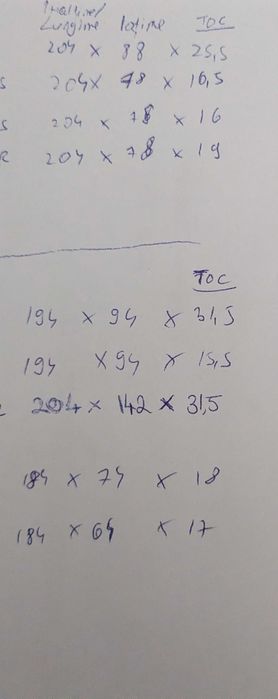 Inaltime/
Lungime latime TOC
204 × 88 × 25,5
S 204 × 78 × 16,5
S 204 × 78 × 16
R 204 × 78 × 19
TOC
194 × 94 × 31,5
194 × 94 × 15,5
204 × 142 × 31,5
184 × 74 × 18
184 × 64 × 17